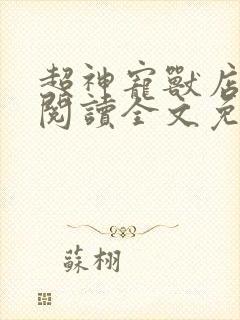 超神寵獸店
閱讀全文免
蘇栩